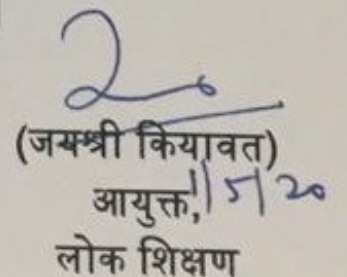 (जयश्री कियावत)
आयुक्त, 1/5/20
लोक शिक्षण